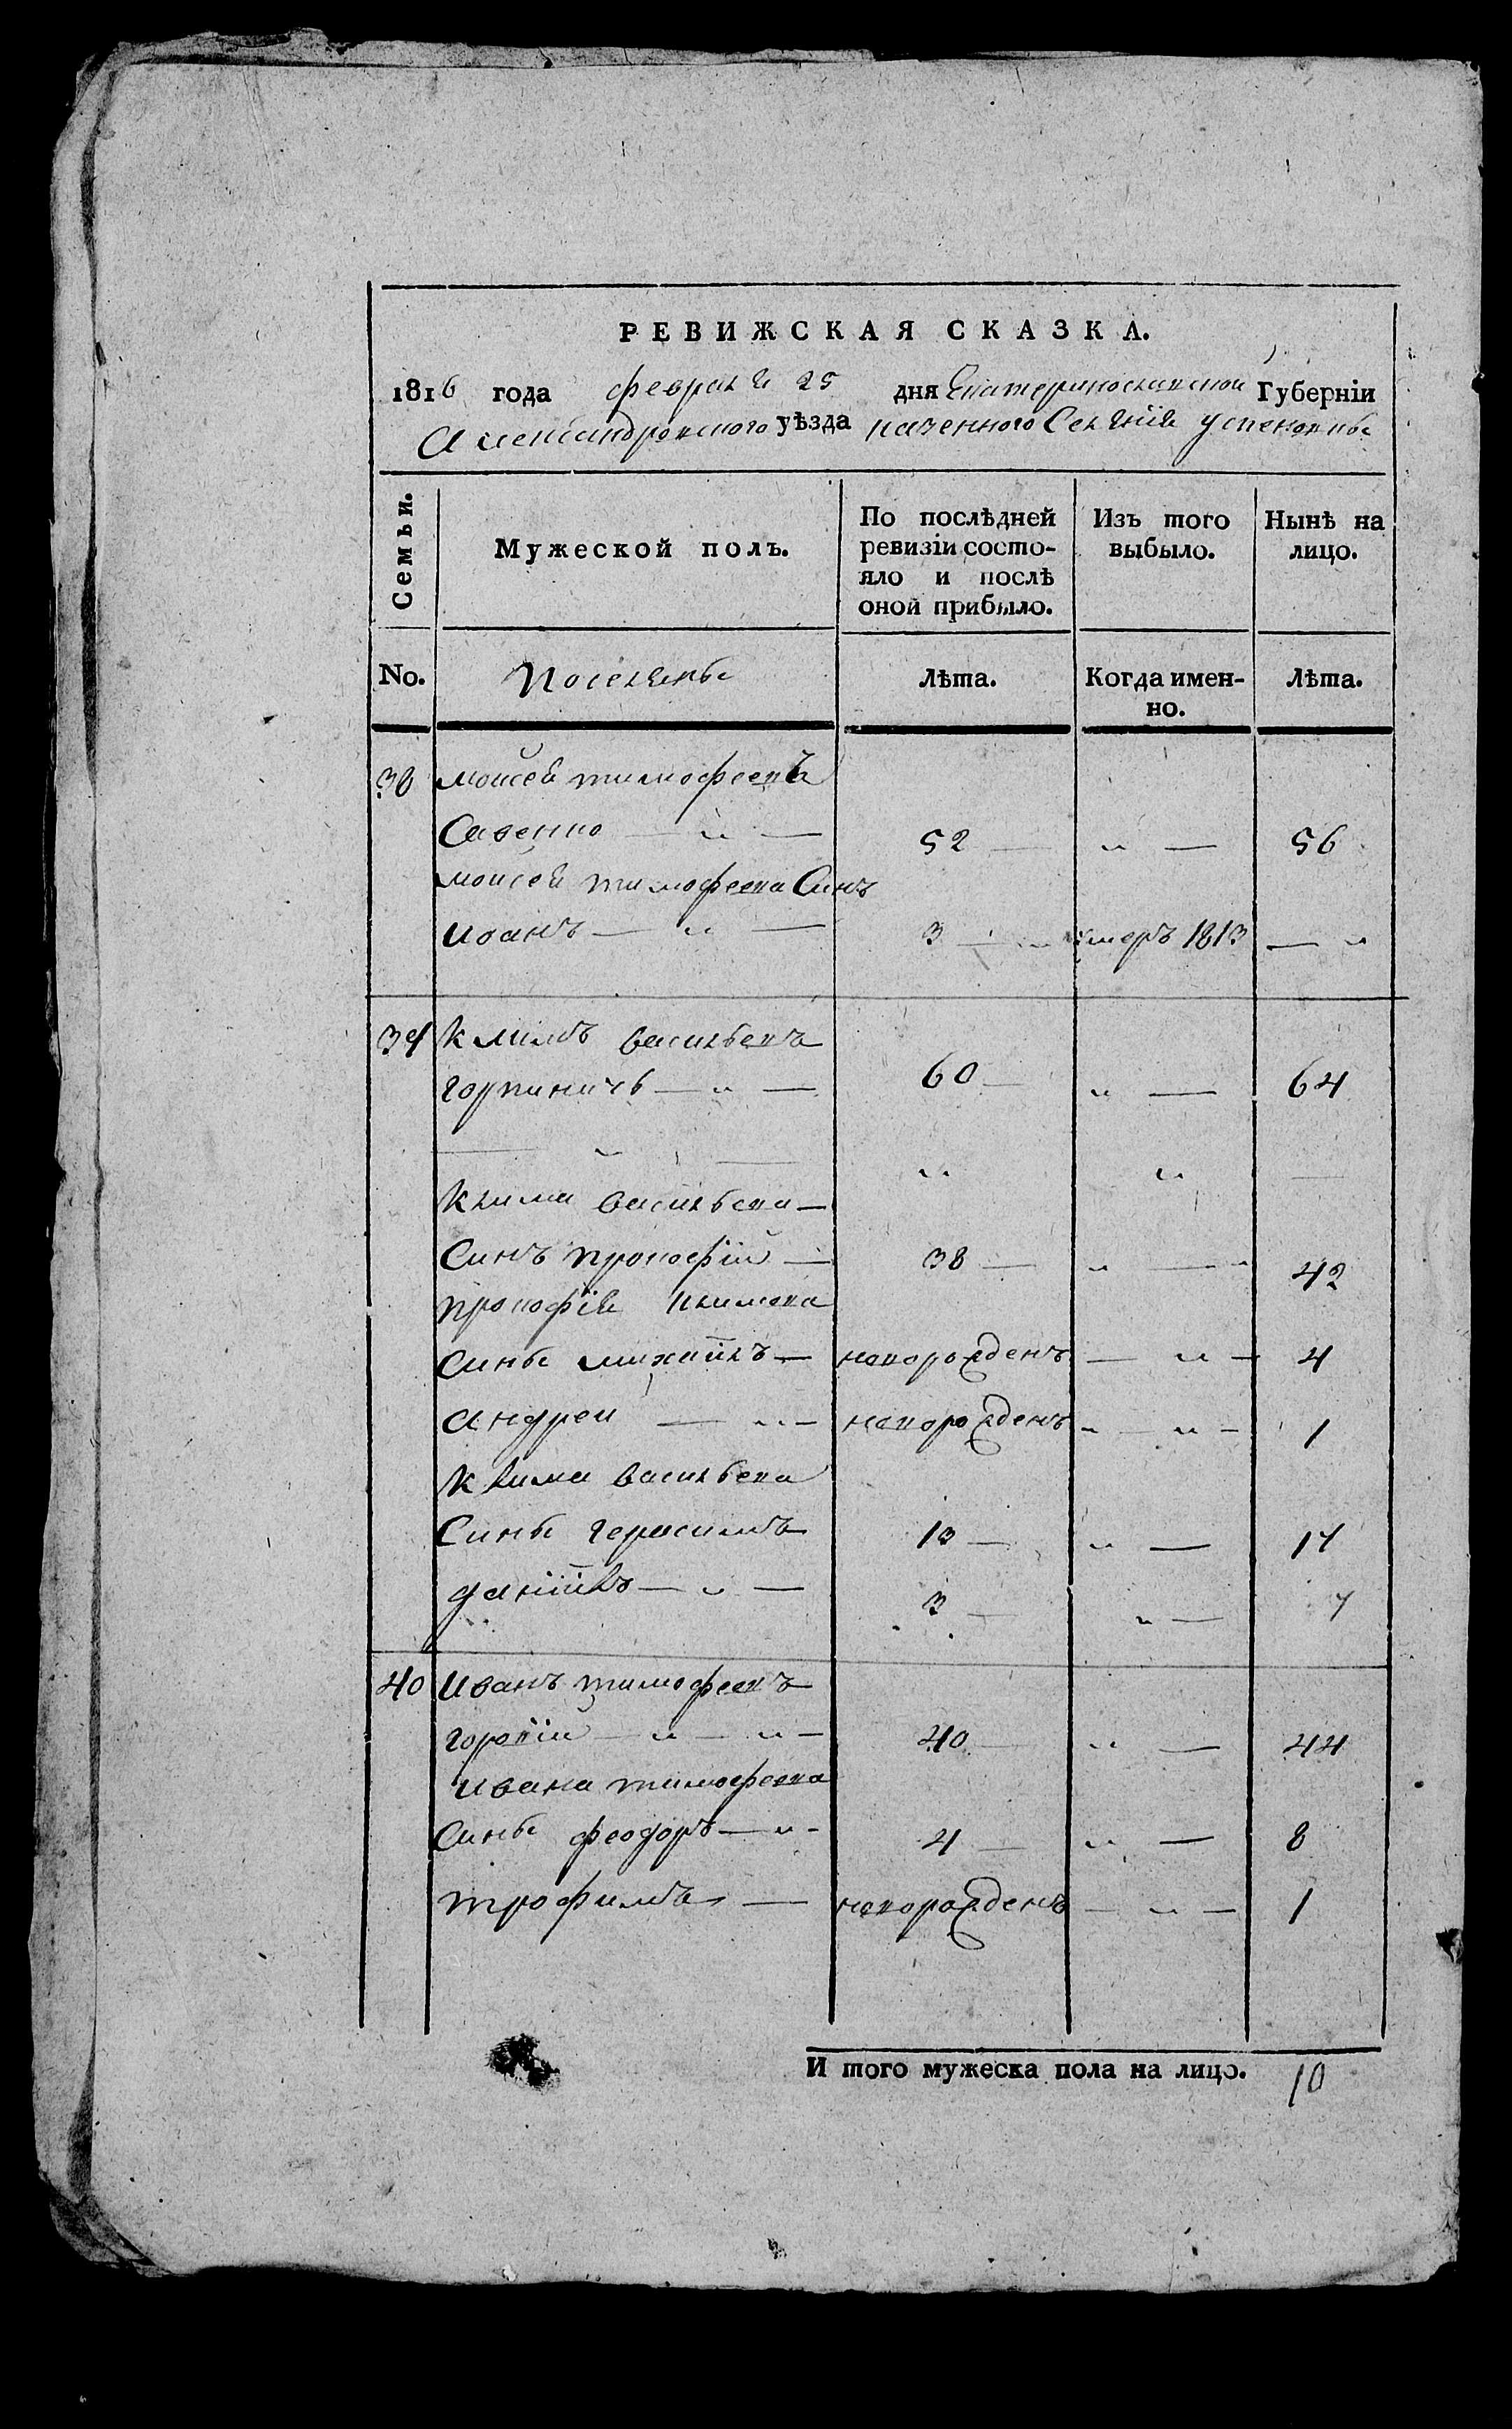 РЕВИЖСКАЯ СКАЗКА.
1816 года февраля 25 дня Екатеринославской Губернїи
Александровского уѣзда казенного Селения успеновкы
Семьи. Мужеской полъ. По послѣдней ревизїи состояло и послѣ оной прибыло. Изъ того выбыло. Нынѣ на лицо.
No. Поселяны Лѣта. Когда именно. Лѣта.
38 моисей тимофеевъ
Савенко — „ — 52 — „ — 56
моисея тимофеева Синъ
иоанъ — „ — 3 — „ умеръ 1813 — „
39 Климъ васильевъ
горпиничь — „ — 60 — „ — 64
— „ — „ „ —
Клима васильева —
Синъ прокофїй — 38 — „ — 42
прокофїя климова
Сины михаилъ — неворожденъ — „ — 4
андреи — „ — неворожденъ „ — „ — 1
Клима васильева
Сины герасимъ 13 — „ — 17
данїилъ — „ — 3 — „ — 7
40 Иванъ тимофеевъ
горкїй — „ — „ — 40 — „ — 44
ивана тимофеева
Сины феодоръ — „ — 4 — „ — 8
трофимъ — неворожденъ — „ — 1
И того мужеска пола на лицо. 10